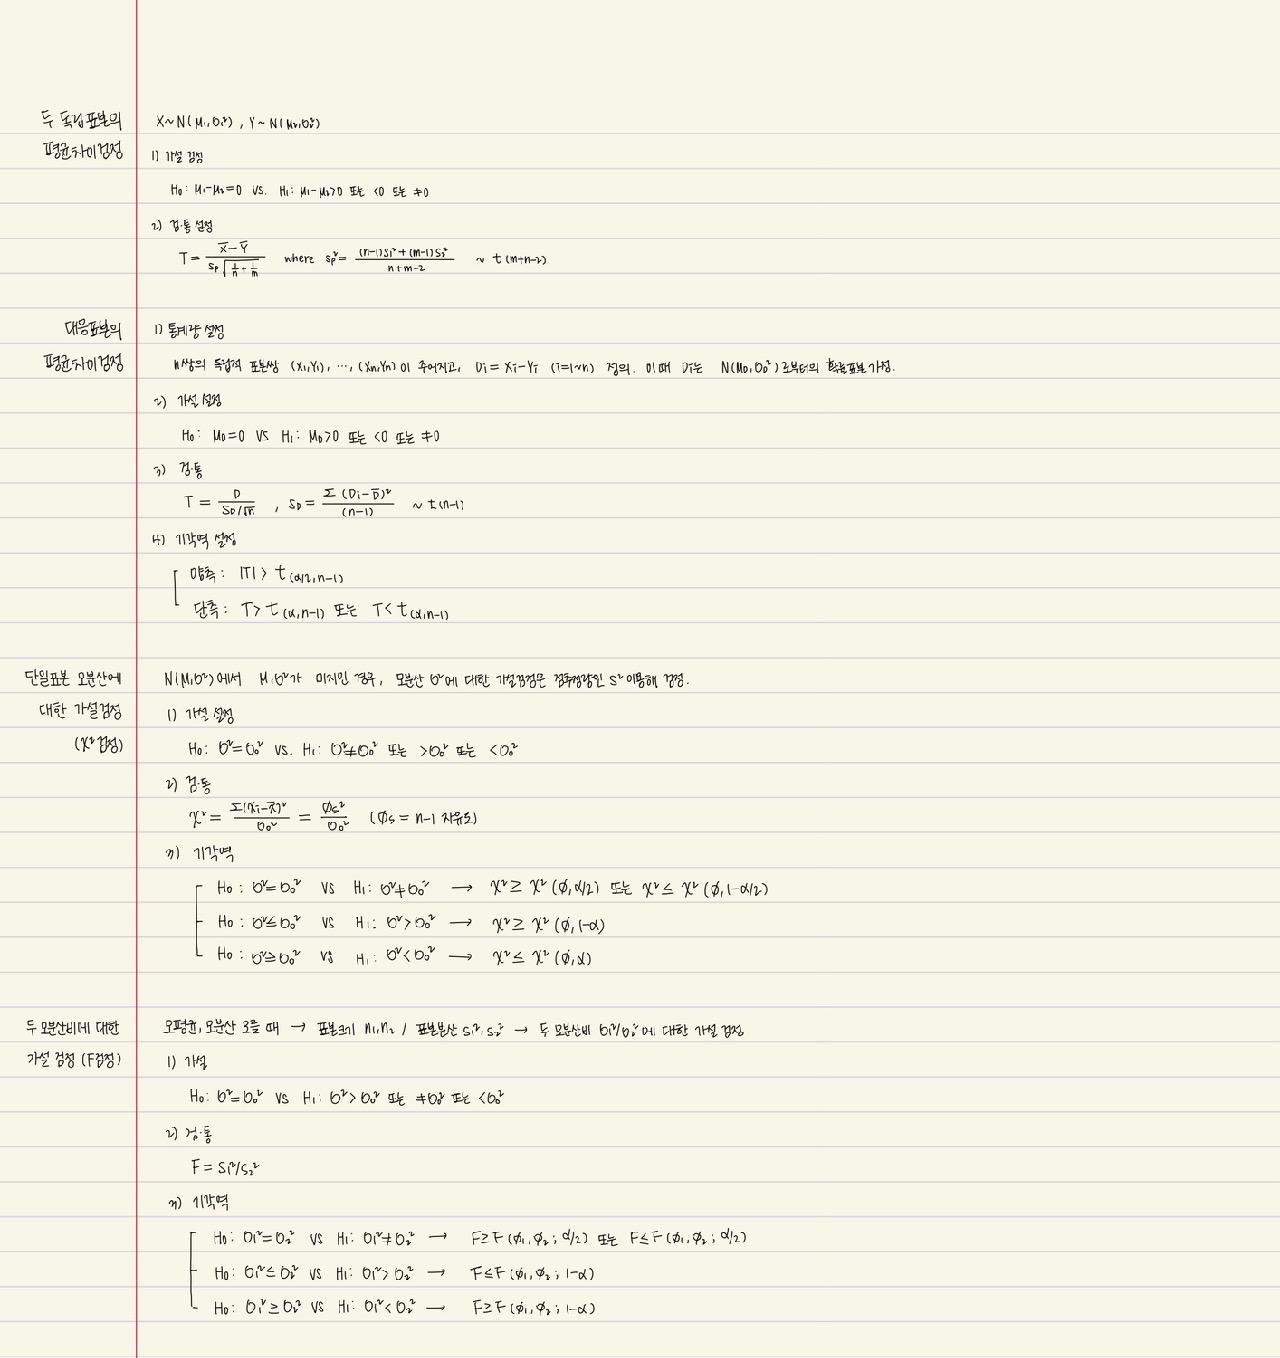 두 독립표본의
평균차이검정
X~N(μ₁,σ₁²) , Y~N(μ₂,σ₂²)
1) 가설 검정
H₀: μ₁-μ₂=0 vs. H₁: μ₁-μ₂>0 또는 <0 또는 ≠0
2) 검·통 설정
T = (X̄-Ȳ)/(Sp√(1/n + 1/m)) where Sp² = ((n-1)S₁²+(m-1)S₂²)/(n+m-2) ~ t(m+n-2)
대응표본의
평균차이검정
1) 통계량 설정
n쌍의 독립적 표본쌍 (X₁,Y₁), ⋯, (Xn,Yn)이 주어지고, Di = Xi-Yi (i=1~n) 정의. 이때 Di는 N(μD,σD²)로부터의 확률표본 가정.
2) 가설 설정
H₀: μD=0 vs H₁: μD>0 또는 <0 또는 ≠0
3) 검·통
T = D/(SD/√n) , SD = Σ(Di-D̄)²/(n-1) ~ t(n-1)
4) 기각역 설정
양측: |T| > t(α/2,n-1)
단측: T > t(α,n-1) 또는 T < t(α,n-1)
단일표본 모분산에
대한 가설검정
(χ²검정)
N(μ,σ²)에서 μ,σ²가 미지인 경우, 모분산 σ²에 대한 가설검정은 S²이용해 검정.
1) 가설 설정
H₀: σ²=σ₀² vs. H₁: σ²≠σ₀² 또는 >σ₀² 또는 <σ₀²
2) 검·통
χ² = Σ(xi-x̄)²/σ₀² = ØS²/σ₀² (Øs = n-1 자유도)
3) 기각역
H₀: σ²=σ₀² vs H₁: σ²≠σ₀² → χ² ≥ χ²(Ø,α/2) 또는 χ² ≤ χ²(Ø,1-α/2)
H₀: σ²≤σ₀² vs H₁: σ²>σ₀² → χ² ≥ χ²(Ø,1-α)
H₀: σ²≥σ₀² vs H₁: σ²<σ₀² → χ² ≤ χ²(Ø,α)
두 모분산비에 대한
가설 검정 (F검정)
모평균,모분산 모를 때 → 표본크기 n₁,n₂ / 표본분산 S₁²,S₂² → 두 모분산비 σ₁²/σ₂²에 대한 가설 검정
1) 가설
H₀: σ²=σ₀² vs H₁: σ²>σ₀² 또는 ≠σ₀² 또는 <σ₀²
2) 검·통
F = S₁²/S₂²
3) 기각역
H₀: σ₁²=σ₂² vs H₁: σ₁²≠σ₂² → F≥F(Ø₁,Ø₂; α/2) 또는 F≤F(Ø₁,Ø₂; α/2)
H₀: σ₁²≤σ₂² vs H₁: σ₁²>σ₂² → F≤F(Ø₁,Ø₂; 1-α)
H₀: σ₁²≥σ₂² vs H₁: σ₁²<σ₂² → F≥F(Ø₁,Ø₂; 1-α)